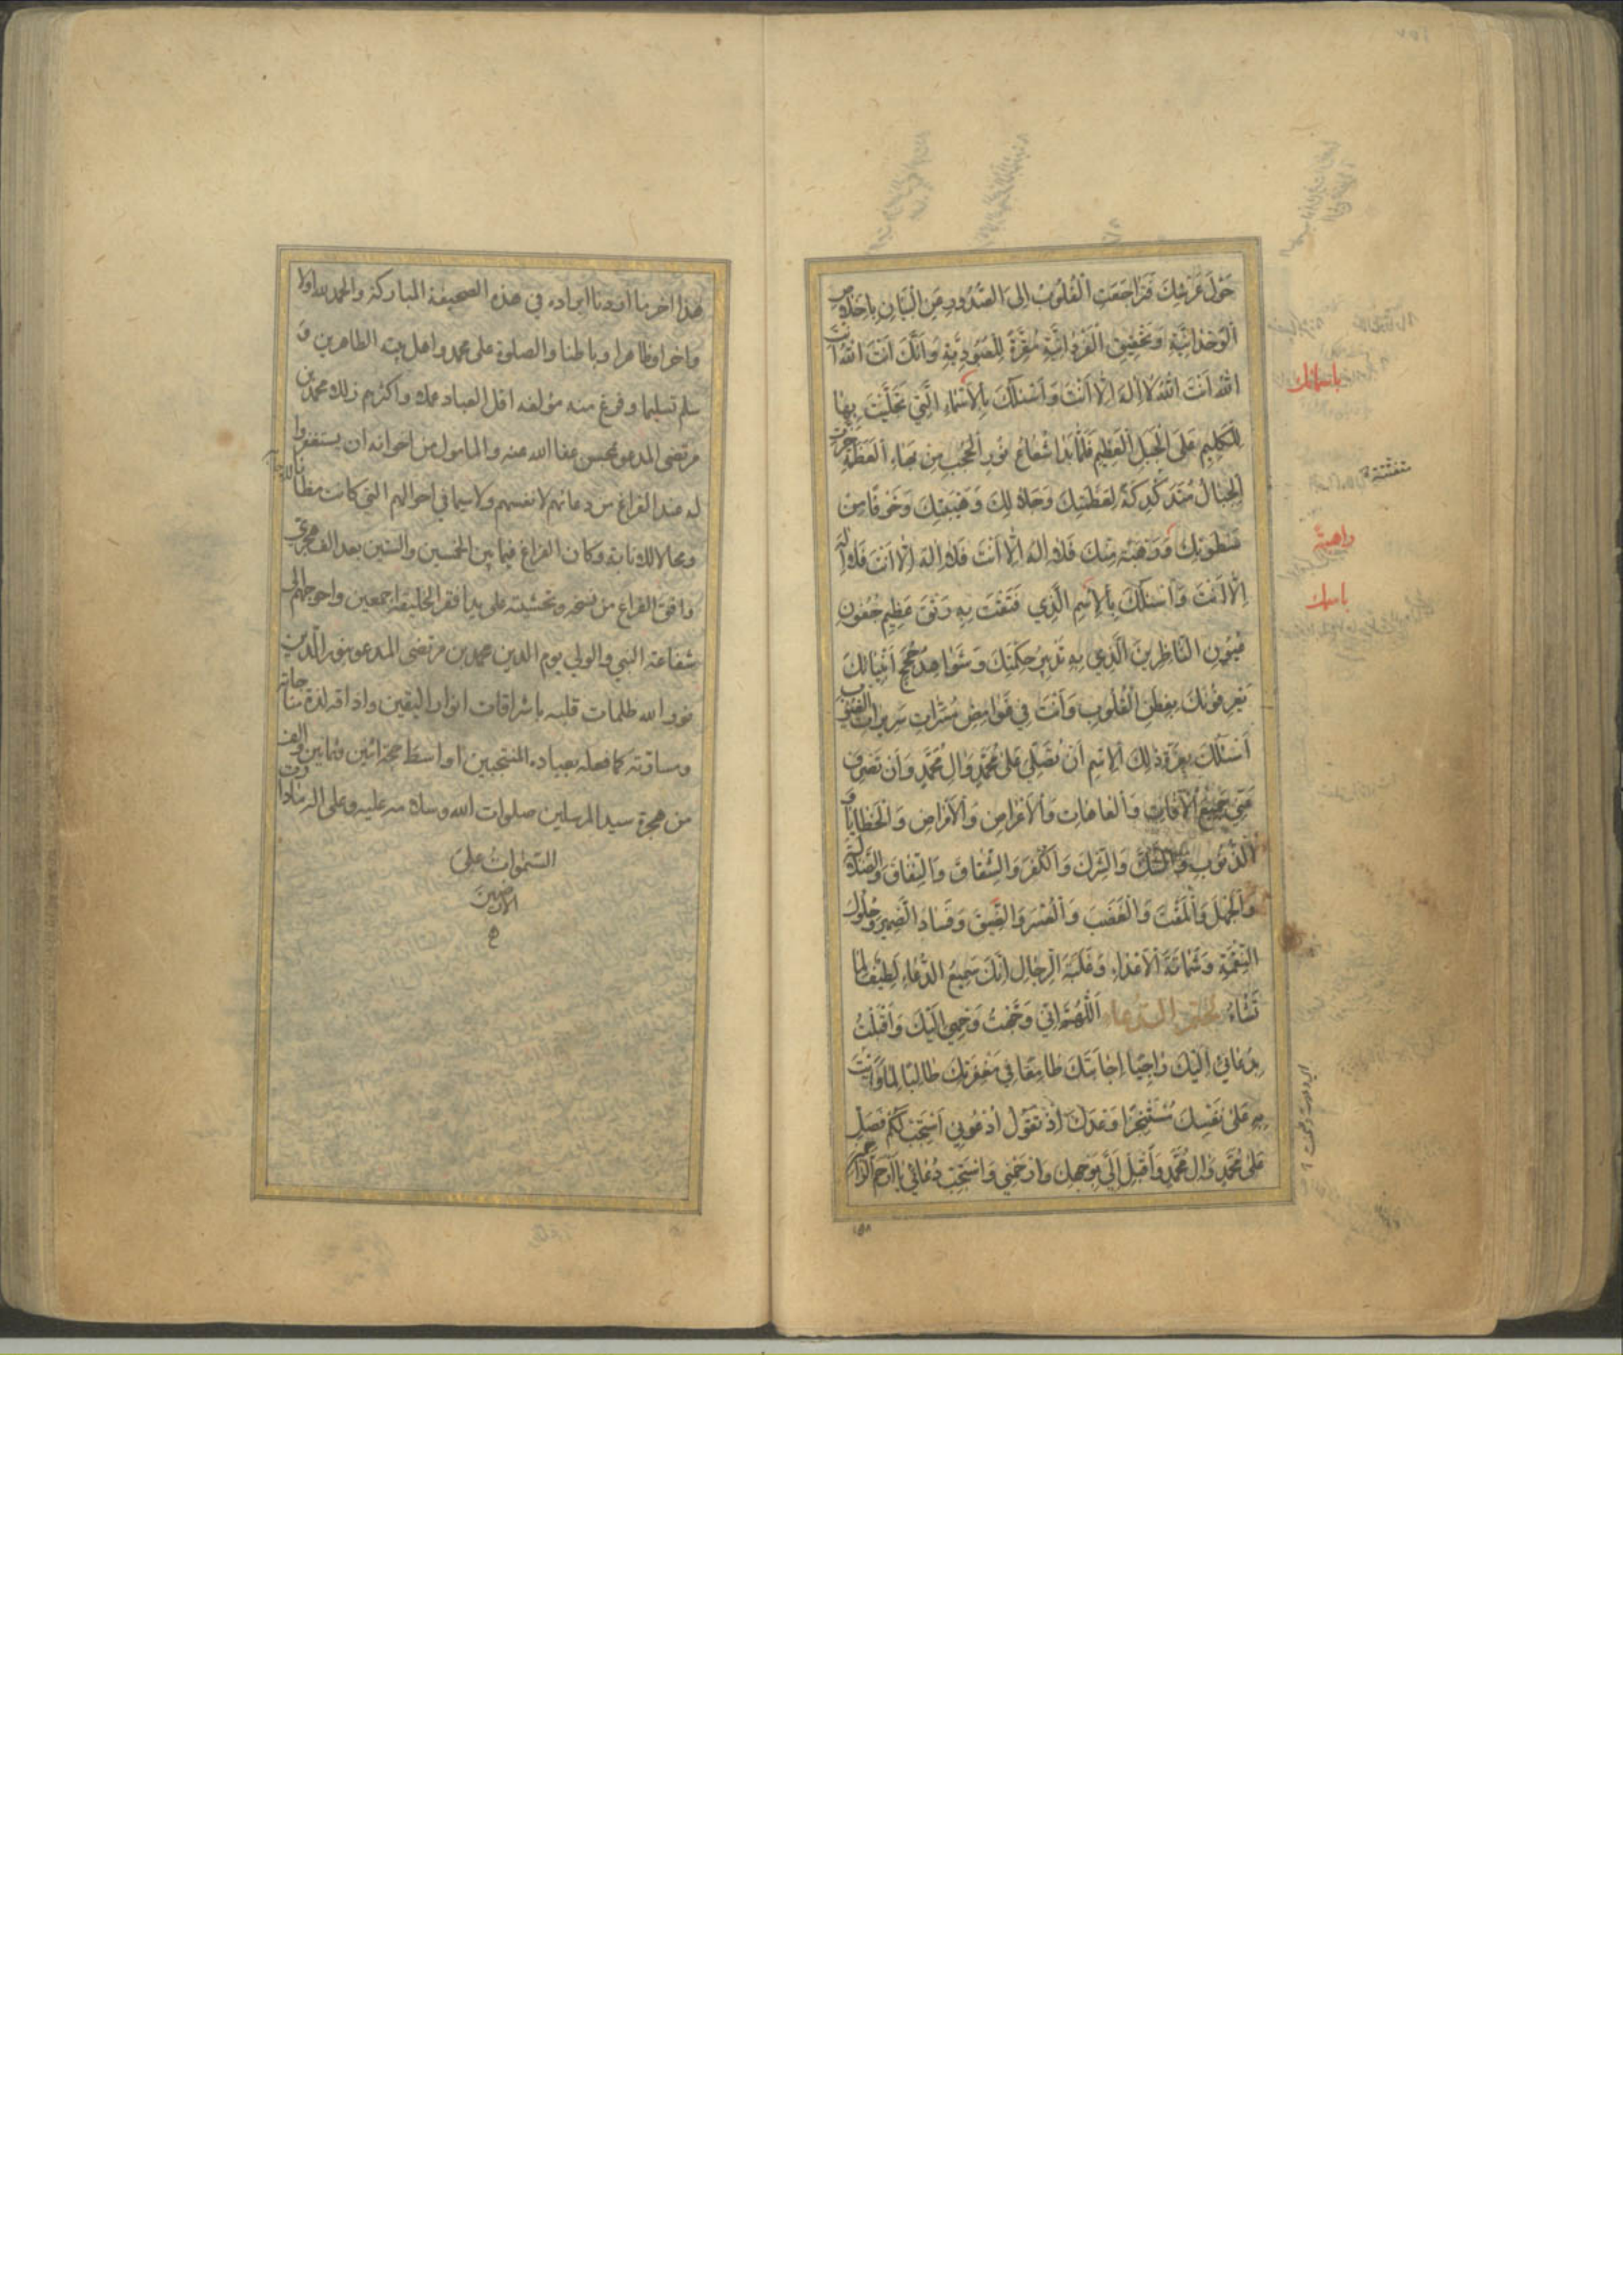 حَوْلَ عَرْشِكَ فَتَرَاجَعَتِ الْقُلُوبُ اِلَى الصُّدُورِ عَنِ الْبَيَانِ بِاِخْلَاصِ
الْوَحْدَانِيَّةِ وَتَحْقِيقِ الْفَرْدَانِيَّةِ مُقِرَّةً لِلْعُبُودِيَّةِ وَاَنَّكَ اَنْتَ اللّٰهُ اَنْتَ
اللّٰهُ اَنْتَ اللّٰهُ لَا اِلٰهَ اِلَّا اَنْتَ وَاَسْئَلُكَ بِالْاَسْمَاءِ الَّتِي تَجَلَّيْتَ بِهَا
لِلْكَلِيمِ عَلَى الْجَبَلِ الْعَظِيمِ فَلَمَّا بَدَا شُعَاعُ نُورِ الْحُجُبِ مِنْ بَهَاءِ الْعَظَمَةِ خَرَّتِ
الْجِبَالُ مُتَدَكْدِكَةً لِعَظَمَتِكَ وَجَلَالِكَ وَهَيْبَتِكَ وَخَوْفًا مِنْ
سَطْوَتِكَ وَرَهْبَةً مِنْكَ فَلَا اِلٰهَ اِلَّا اَنْتَ فَلَا اِلٰهَ اِلَّا اَنْتَ فَلَا اِلٰهَ
اِلَّا اَنْتَ وَاَسْئَلُكَ بِالْاِسْمِ الَّذِي فَتَقْتَ بِهِ رَتْقَ عَظِيمِ جُفُونِ
عُيُونِ النَّاظِرِينَ الَّذِي بِهِ تَدْبِيرُ حِكْمَتِكَ وَشَوَاهِدُ حُجَجِ اَنْبِيَائِكَ
يَعْرِفُونَكَ بِفِطَنِ الْقُلُوبِ وَاَنْتَ فِي غَوَامِضِ مُسَرَّاتِ سَرِيرَاتِ الْغُيُوبِ
اَسْئَلُكَ بِعِزَّةِ ذٰلِكَ الْاِسْمِ اَنْ تُصَلِّيَ عَلَى مُحَمَّدٍ وَالِ مُحَمَّدٍ وَاَنْ تَصْرِفَ
عَنِّي جَمِيعَ الْاٰفَاتِ وَالْعَاهَاتِ وَالْاَعْرَاضِ وَالْاَمْرَاضِ وَالْخَطَايَا وَ
الذُّنُوبِ وَالشَّكَّ وَالشِّرْكَ وَالْكُفْرَ وَالشِّقَاقَ وَالنِّفَاقَ وَالضَّلَالَةَ
وَالْجَهْلَ وَالْمَقْتَ وَالْغَضَبَ وَالْعُسْرَ وَالضِّيقَ وَفَسَادَ الضَّمِيرِ وَحُلُولَ
النِّقْمَةِ وَشَمَاتَةَ الْاَعْدَاءِ وَغَلَبَةَ الرِّجَالِ اِنَّكَ سَمِيعُ الدُّعَاءِ لَطِيفٌ لِمَا
تَشَاءُ الدعاء اَللّٰهُمَّ اِنِّي وَجَّهْتُ وَجْهِي اِلَيْكَ وَاَقْبَلْتُ
بِدُعَائِي اِلَيْكَ رَاجِيًا اِجَابَتَكَ طَامِعًا فِي مَغْفِرَتِكَ طَالِبًا لِمَا وَاَيْتَ
بِهِ عَلَى نَفْسِكَ مُسْتَنْجِزًا وَعْدَكَ اِذْ تَقُولُ اُدْعُونِي اَسْتَجِبْ لَكُمْ فَصَلِّ
عَلَى مُحَمَّدٍ وَالِ مُحَمَّدٍ وَاَقْبِلْ اِلَيَّ بِوَجْهِكَ وَارْحَمْنِي وَاسْتَجِبْ دُعَائِي يَا اَرْحَمَ الرَّاحِمِينَ
باسمائك
باسمك
هذا اخر ما اردنا ايراده في هذه الصحيفة المباركة والحمد لله اولا
واخرا وظاهرا وباطنا والصلوة على محمد واهل بيته الطاهرين و
سلم تسليما وفرغ منه مؤلفه اقل العباد عملا واكثرهم زللا محمد بن
مرتضى المدعو بمحسن عفا الله عنه والمامول من اخوانه ان يستغفروا
له عند الفراغ من دعائهم لانفسهم ولاسيما في احوالهم التي كانت مظانا
ومحالا للاجابة وكان الفراغ فيما بين الخمسين والستين بعد الف هجري
واتفق الفراغ من نسخه وتحشيته على يد افقر الخليقة اجمعين واحوجهم الى
شفاعة النبي والولي يوم الدين محمد بن مرتضى المدعو بنور الدين
نور الله ظلمات قلبه باشراقات انوار اليقين واذاقه لذة مناجاته
ومسارته كما فعله بعباده المنتجبين اواسط حجة اثنين وثمانين والف
من هجرة سيد المرسلين صلوات الله وسلامه عليه وعلى اله ما دارت
السَّمٰوَاتُ عَلَى
الْاَرَضِينَ